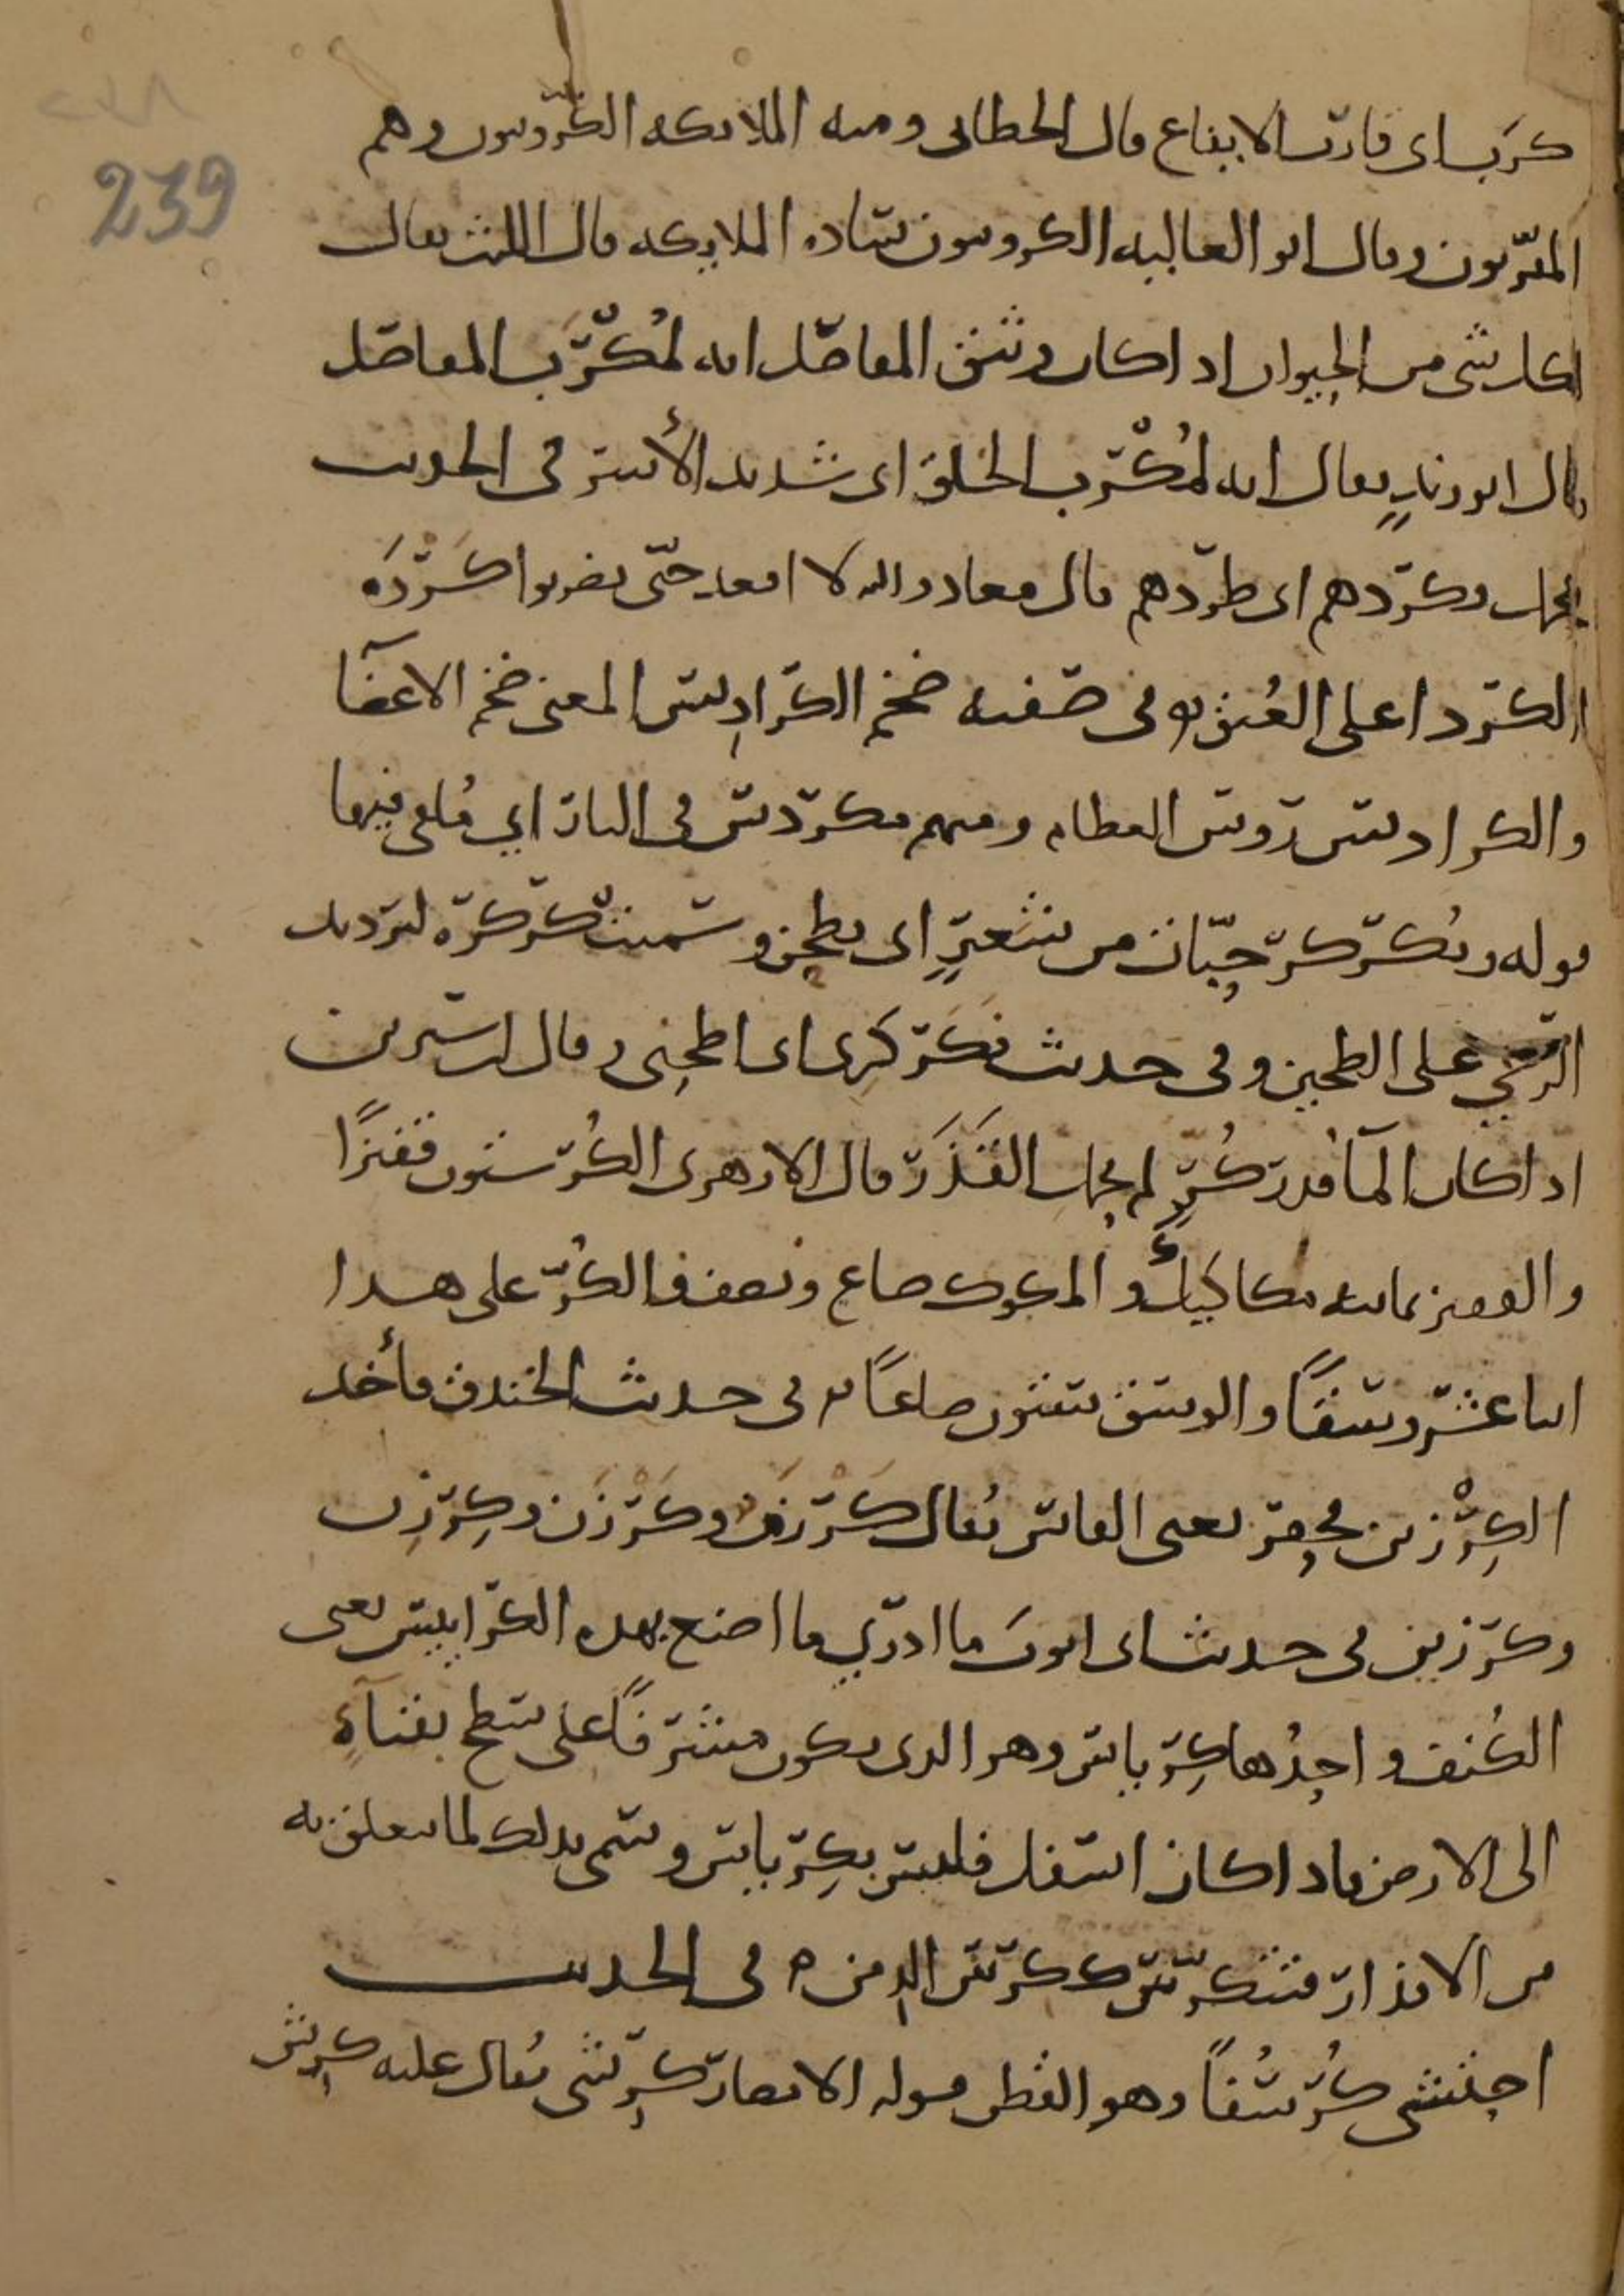 239
كرب اى قارب الايفاع قال الخطابى ومنه الملائكة الكروبيون وهم
المقربون وقال ابو العاليه الكروبيون سادة الملايكه قال الليث يقال
لكل شى من الحيوان اذا كان وثيق المفاصل انه لمُكرَب المفاصل
قال ابو زيدٍ يقال انه لمُكْرَب الخلق اى شديد الأسر فى الحديث
فحمل وكردهم اى طردهم قال معاذ والله لا اقعد حتّى تضربوا كَرْدَه
الكرد اعلى العُنق وفى صفته ضخم الكراديس المعنى ضخم الاعضآ
والكراديس رؤس العظام ومنهم مكردس فى النار اي مُلقى فيها
قوله وتُكركر حبّات من شعيرٍ اى تطحن وسميت كركرة لترديد
الرحي على الطحين وفى حديث فكَركَرِى اى اطحنِى وقال ابن سيرين
اذا كان المآ قدر كُرٍّ لم يحمل القَذَر قال الازهرى الكُر ستون قفيزًا
والقفيز ثمانيه مكاكيك والمكوك صاع ونصف فالكُرّ على هذا
اثنا عشر وسقًا والوسق ستون صاعًا فى حديث الخندق فأخذ
الكِرْزين يحفر يعنى الفاس يُقال كَرْزَن وكَرْزَن وكِرْزِن
وكرزين فى حديث ابى ايوب ما ادري ما اصنع بهذه الكراييس يعنى
الكُنف واحِدُها كِرياس وهو الذى يكون مشرفًا على سطح بقناةٍ
الى الارض فاذا كان اسفل فليس بكِرياس وسمى بذلك لما يتعلق به
من الاقذار فتتكرّس ككرس الدِمن ٥ فى الحديث
احتشى كُرسُفًا وهو القطن قوله الانصار كرِشى يُقال عليه كرِش